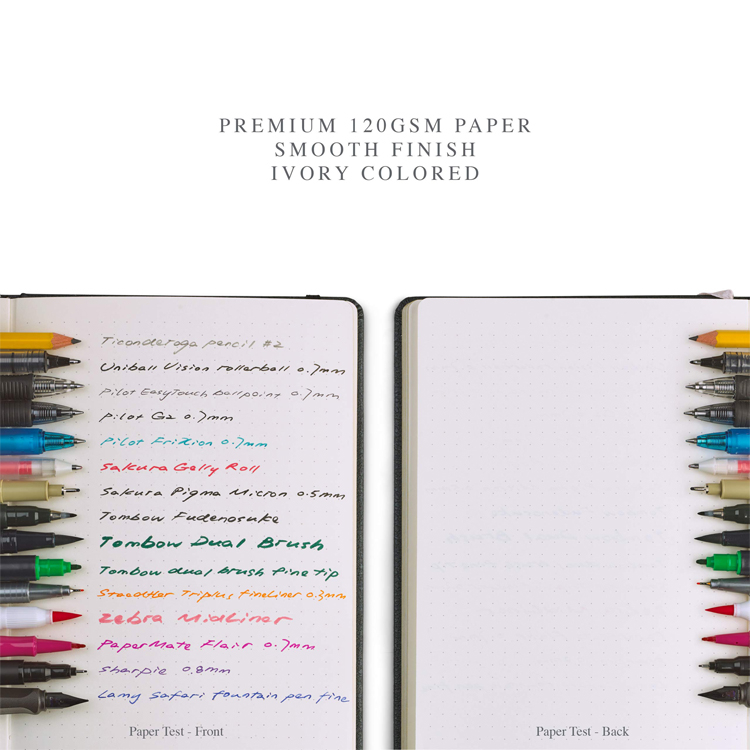 PREMIUM 120GSM PAPER
SMOOTH FINISH
IVORY COLORED
Ticonderoga pencil #2
Uniball Vision rollerball 0.7mm
Pilot EasyTouch ballpoint 0.7mm
Pilot G2 0.7mm
Pilot FriXion 0.7mm
Sakura Gelly Roll
Sakura Pigma Micron 0.5mm
Tombow Fudenosuke
Tombow Dual Brush
Tombow dual brush fine tip
Staedtler Triplus fineliner 0.3mm
Zebra Midliner
PaperMate Flair 0.7mm
Sharpie 0.8mm
Lamy Safari fountain pen fine
Paper Test - Front
Paper Test - Back